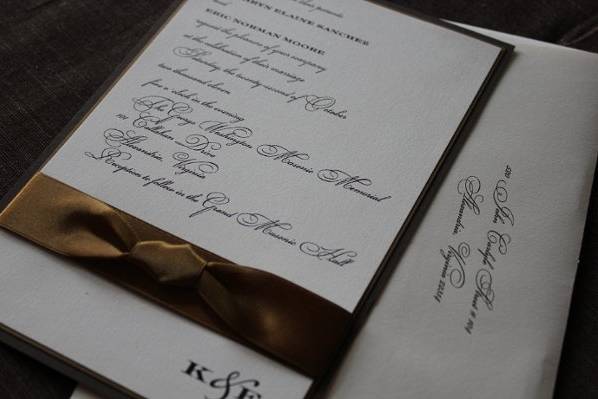 their parents
and
ELAINE SANCHEZ
ERIC NORMAN MOORE
request the pleasure of your company
at the celebration of their marriage
Saturday, the twenty-second of October
two thousand eleven
four o'clock in the evening
The George Washington Masonic Memorial
101 Callahan Drive
Alexandria, Virginia
Reception to follow in the Grand Masonic Hall
K & E
Street
Alexandria, Virginia 22314